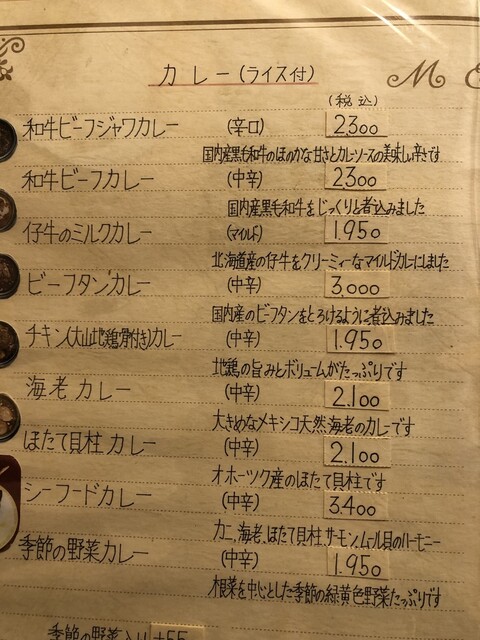 カレー(ライス付)
M
(税込)
和牛ビーフジャワカレー (辛口) 2300
国内産黒毛和牛のほのかな甘さとカレーソースの美味しい辛さです
和牛ビーフカレー (中辛) 2300
国内産黒毛和牛をじっくりと煮込みました
仔牛のミルクカレー (マイルド) 1.950
北海道産の仔牛をクリーミィーなマイルドカレーにしました
ビーフタンカレー (中辛) 3,000
国内産のビーフタンをとろけるように煮込みました
チキン(大山地鶏骨付き)カレー (中辛) 1.950
地鶏の旨みとボリュームがたっぷりです
海老カレー (中辛) 2.100
大きめなメキシコ天然海老のカレーです
ほたて貝柱カレー (中辛) 2.100
オホーツク産のほたて貝柱です
シーフードカレー (中辛) 3.400
カニ,海老、ほたて貝柱,サーモン,ムール貝のハーモニー
季節の野菜カレー (中辛) 1.950
根菜を中心とした季節の緑黄色野菜たっぷりです
季節の野菜入り +55